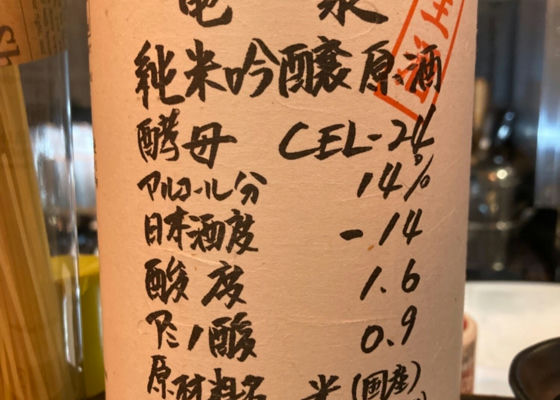 亀泉
純米吟醸原酒
酵母 CEL-24
アルコール分 14%
日本酒度 -14
酸度 1.6
アミノ酸 0.9
原材料名 米(国産)